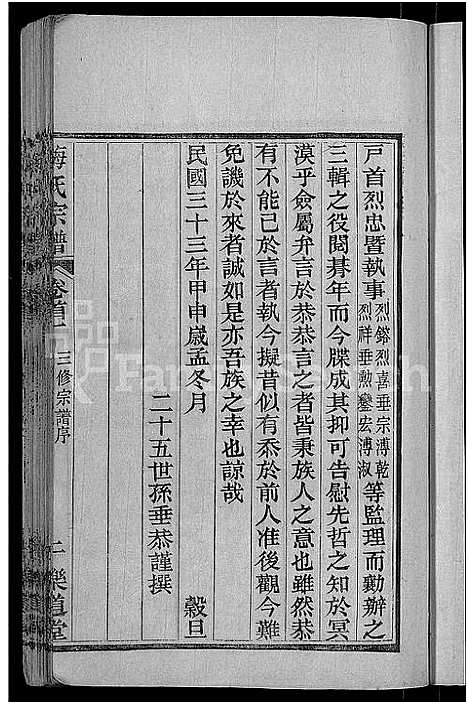 戸首烈忠暨執事烈鎔烈喜垂宗溥乾烈祥垂勲鑾宏溥淑等監理而勷辦之
三輯之役閱朞年而今牒成其抑可告慰先哲之知於冥
漠乎僉屬弁言於恭恭言之者皆秉族人之意也雖然恭
有不能已於言者執今擬昔似有忝於前人准後觀今難
免譏於來者誠如是亦吾族之幸也諒哉
民國三十三年甲申嵗孟冬月　穀旦
二十五世孫垂恭謹撰
梅氏宗譜　卷首　三修宗譜序　二　樂道堂
FamilySearch